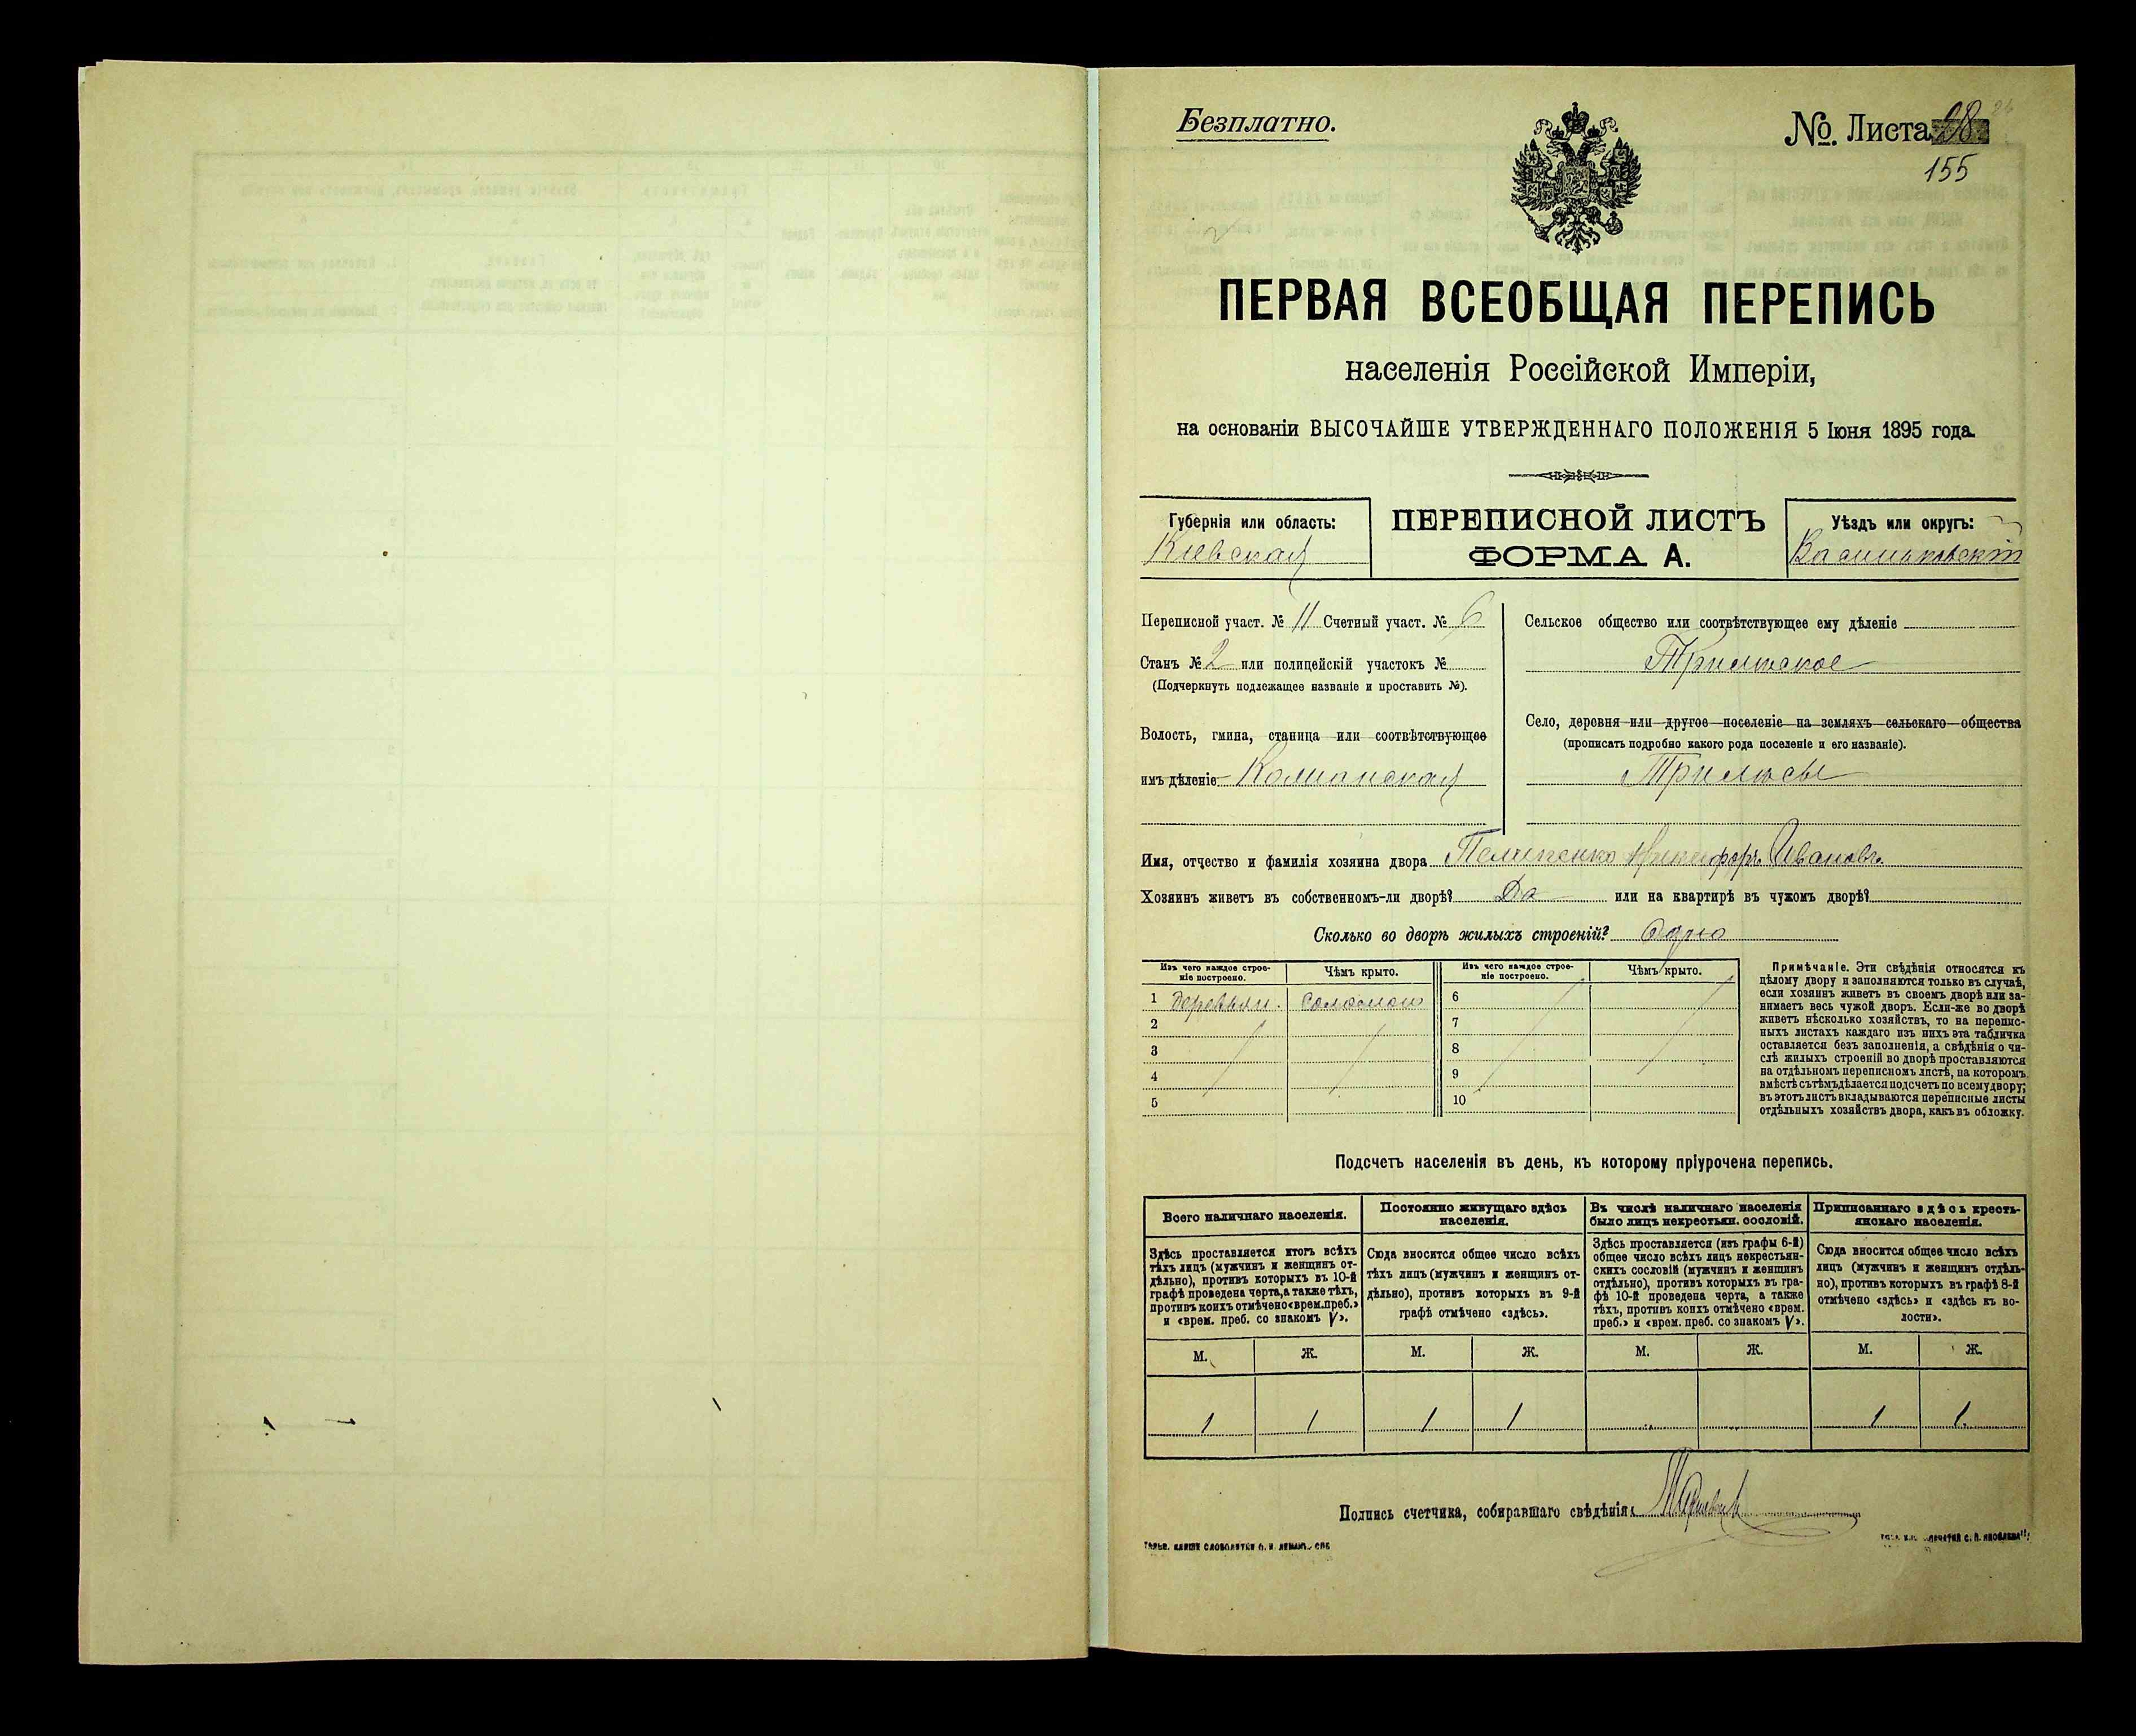 Безплатно.
№ Листа 98
155
ПЕРВАЯ ВСЕОБЩАЯ ПЕРЕПИСЬ
населенія Россійской Имперіи,
на основаніи ВЫСОЧАЙШЕ УТВЕРЖДЕННАГО ПОЛОЖЕНІЯ 5 Іюня 1895 года.
Губернія или область:
Кіевская
ПЕРЕПИСНОЙ ЛИСТЪ
ФОРМА А.
Уѣздъ или округъ:
Васильковскій
Переписной участ. № 11 Счетный участ. № 6
Станъ № 2 или полицейскій участокъ №
(Подчеркнуть подлежащее названіе и проставить №).
Волость, гмина, станица или соотвѣтствующее
имъ дѣленіе
Сельское общество или соотвѣтствующее ему дѣленіе
Трилѣское
Село, деревня или другое поселеніе на земляхъ сельскаго общества
(прописать подробно какого рода поселеніе и его названіе).
Трилѣсы
Имя, отчество и фамилія хозяина двора Пелипенко Никифоръ Ивановъ.
Хозяинъ живетъ въ собственномъ-ли дворѣ? Да или на квартирѣ въ чужомъ дворѣ?
Сколько во дворѣ жилыхъ строеній? Одно
Изъ чего каждое строе-
ніе построено.
Чѣмъ крыто.
1 Деревян. Соломою
2
3
4
5
Изъ чего каждое строе-
ніе построено.
Чѣмъ крыто.
6
7
8
9
10
Примѣчаніе. Эти свѣдѣнія относятся къ
цѣлому двору и заполняются только въ случаѣ,
если хозяинъ живетъ въ своемъ дворѣ или за-
нимаетъ весь чужой дворъ. Если-же во дворѣ
живетъ нѣсколько хозяйствъ, то на перепис-
ныхъ листахъ каждаго изъ нихъ эта табличка
оставляется безъ заполненія, а свѣдѣнія о чи-
слѣ жилыхъ строеній во дворѣ проставляются
на отдѣльномъ переписномъ листѣ, на которомъ
вмѣстѣ съ тѣмъ дѣлается подсчетъ по всему двору;
въ этотъ листъ вкладываются переписные листы
отдѣльныхъ хозяйствъ двора, какъ въ обложку.
Подсчетъ населенія въ день, къ которому пріурочена перепись.
Всего наличнаго населенія.
Здѣсь проставляется итогъ всѣхъ
тѣхъ лицъ (мужчинъ и женщинъ от-
дѣльно), противъ которыхъ въ 10-й
графѣ проведена черта, а также тѣхъ,
противъ коихъ отмѣчено «врем. преб.»
и «врем. преб. со знакомъ V».
М. Ж.
1 1
Постоянно живущаго здѣсь
населенія.
Сюда вносится общее число всѣхъ
тѣхъ лицъ (мужчинъ и женщинъ от-
дѣльно), противъ которыхъ въ 9-й
графѣ отмѣчено «здѣсь».
М. Ж.
1 1
Въ числѣ наличнаго населенія
было лицъ некрестьян. сословій.
Здѣсь проставляется (изъ графы 6-й)
общее число всѣхъ лицъ некрестьян-
скихъ сословій (мужчинъ и женщинъ
отдѣльно), противъ которыхъ въ гра-
фѣ 10-й проведена черта, а также
тѣхъ, противъ коихъ отмѣчено «врем.
преб.» и «врем. преб. со знакомъ V».
М. Ж.
Приписаннаго здѣсь кресть-
янскаго населенія.
Сюда вносится общее число всѣхъ
лицъ (мужчинъ и женщинъ отдѣль-
но), противъ которыхъ въ графѣ 8-й
отмѣчено «здѣсь» и «здѣсь къ во-
лости».
М. Ж.
1 1.
Подпись счетчика, собиравшаго свѣдѣнія: